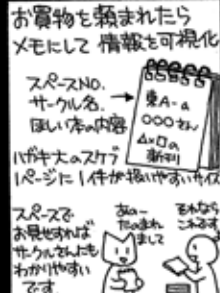 お買物を頼まれたら
メモにして 情報を可視化
スペースNO.
サークル名.
ほしい本の内容
東A-a
○○○さん
△×□の
新刊
ハガキ大のスケブ
1ページに1件が扱いやすいサイズ
スペースで
お見せすれば
サークルさんにも
わかりやすい
です。
あのー
たのまれ
まして
それなら
これです